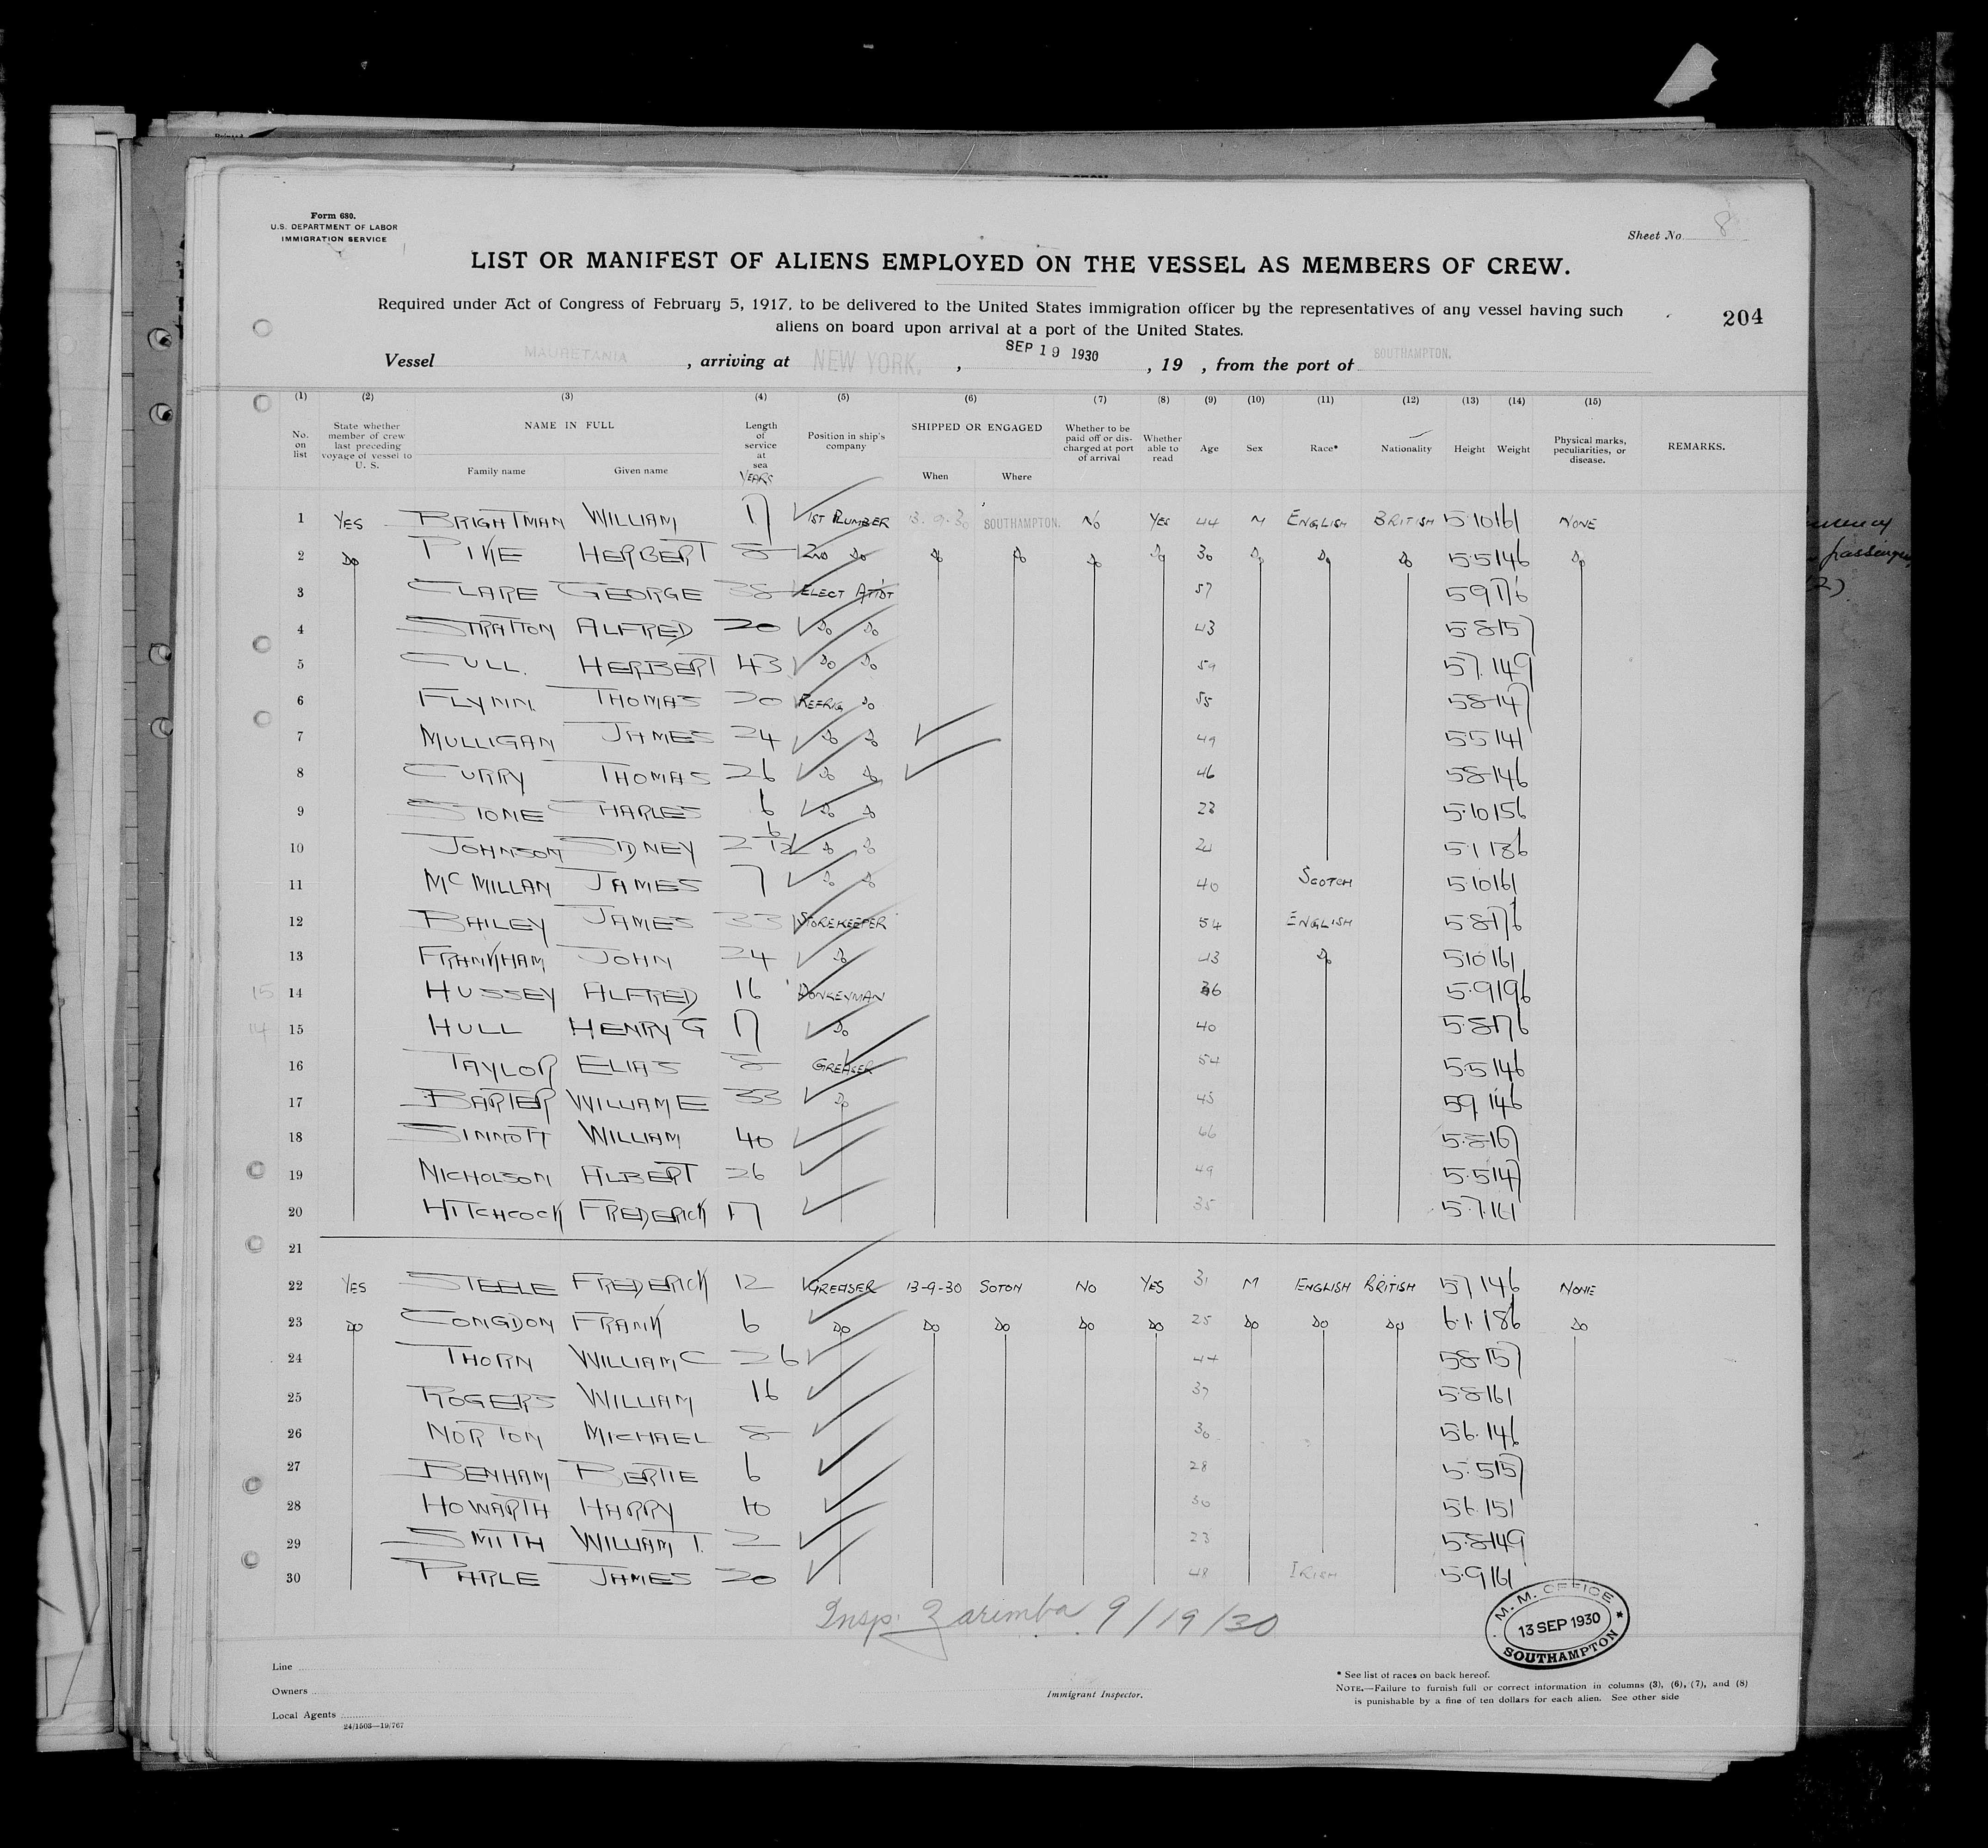 Form 680.
U.S. DEPARTMENT OF LABOR
IMMIGRATION SERVICE
Sheet No. 8
LIST OR MANIFEST OF ALIENS EMPLOYED ON THE VESSEL AS MEMBERS OF CREW.
Required under Act of Congress of February 5, 1917, to be delivered to the United States immigration officer by the representatives of any vessel having such
aliens on board upon arrival at a port of the United States.
204
Vessel MAURETANIA, arriving at NEW YORK, SEP 19 1930, 19 , from the port of SOUTHAMPTON.
(1) (2) (3) (4) (5) (6) (7) (8) (9) (10) (11) (12) (13) (14) (15)
No. on list State whether member of crew last preceding voyage of vessel to U. S. NAME IN FULL Family name Given name Length of service at sea YEARS Position in ship's company SHIPPED OR ENGAGED When Where Whether to be paid off or discharged at port of arrival Whether able to read Age Sex Race* Nationality Height Weight Physical marks, peculiarities, or disease. REMARKS.
1 YES BRIGHTMAN WILLIAM 17 1ST PLUMBER 13.9.30 SOUTHAMPTON. NO YES 44 M ENGLISH BRITISH 5.10 161 NONE
2 DO PIKE HERBERT 8 2ND DO DO DO DO DO 30 DO DO DO 5.5 146 DO
3 CLARE GEORGE 38 ELECT ATTDT 57 5 9 176
4 STRATTON ALFRED 20 DO DO 43 5.8 157
5 CULL. HERBERT 43 DO DO 59 5 7. 149
6 FLYNN. THOMAS 20 REFRIG DO 55 5 8 147
7 MULLIGAN JAMES 24 DO DO 49 5 5 141
8 CURRY THOMAS 26 DO DO 46 5 8 146
9 STONE CHARLES 6 DO DO 23 5.10 156
10 JOHNSON SIDNEY 2 6/12 DO DO 24 5.1 136
11 MCMILLAN JAMES 7 DO DO 40 SCOTCH 5.10 161
12 BAILEY JAMES 33 STOREKEEPER 54 ENGLISH 5 8 176
13 FRANKHAM JOHN 24 DO 43 DO 5 10 161
15 14 HUSSEY ALFRED 16 DONKEYMAN 36 5.9 196
14 15 HULL HENRY G 17 DO 40 5.8 176
16 TAYLOR ELIAS 8 GREASER 54 5.5 146
17 BARTER WILLIAM E 33 DO 45 5 9 146
18 SINNOTT WILLIAM 40 66 5.8 167
19 NICHOLSON ALBERT 26 49 5.5 147
20 HITCHCOCK FREDERICK 17 35 5.7. 161
21
22 YES STEELE FREDERICK 12 GREASER 13-9-30 SOTON NO YES 31 M ENGLISH BRITISH 5 7 146 NONE
23 DO CONGDON FRANK 6 DO DO DO DO DO 25 DO DO DO 6.1. 186 DO
24 THORN WILLIAM C 26 44 5 8 157
25 ROGERS WILLIAM 16 37 5.8 161
26 NORTON MICHAEL 8 30 5 6. 146
27 BENHAM BERTIE 6 28 5. 5 157
28 HOWARTH HARRY 10 30 5 6. 151
29 SMITH WILLIAM T. 2 23 5.8 149
30 PARLE JAMES 20 48 IRISH 5.9 161
Insp. Zarimba 9/19/30
M. M. OFFICE
13 SEP 1930
SOUTHAMPTON
Line
Owners
Local Agents
24/1503—19/767
Immigrant Inspector.
* See list of races on back hereof.
NOTE.—Failure to furnish full or correct information in columns (3), (6), (7), and (8)
is punishable by a fine of ten dollars for each alien. See other side